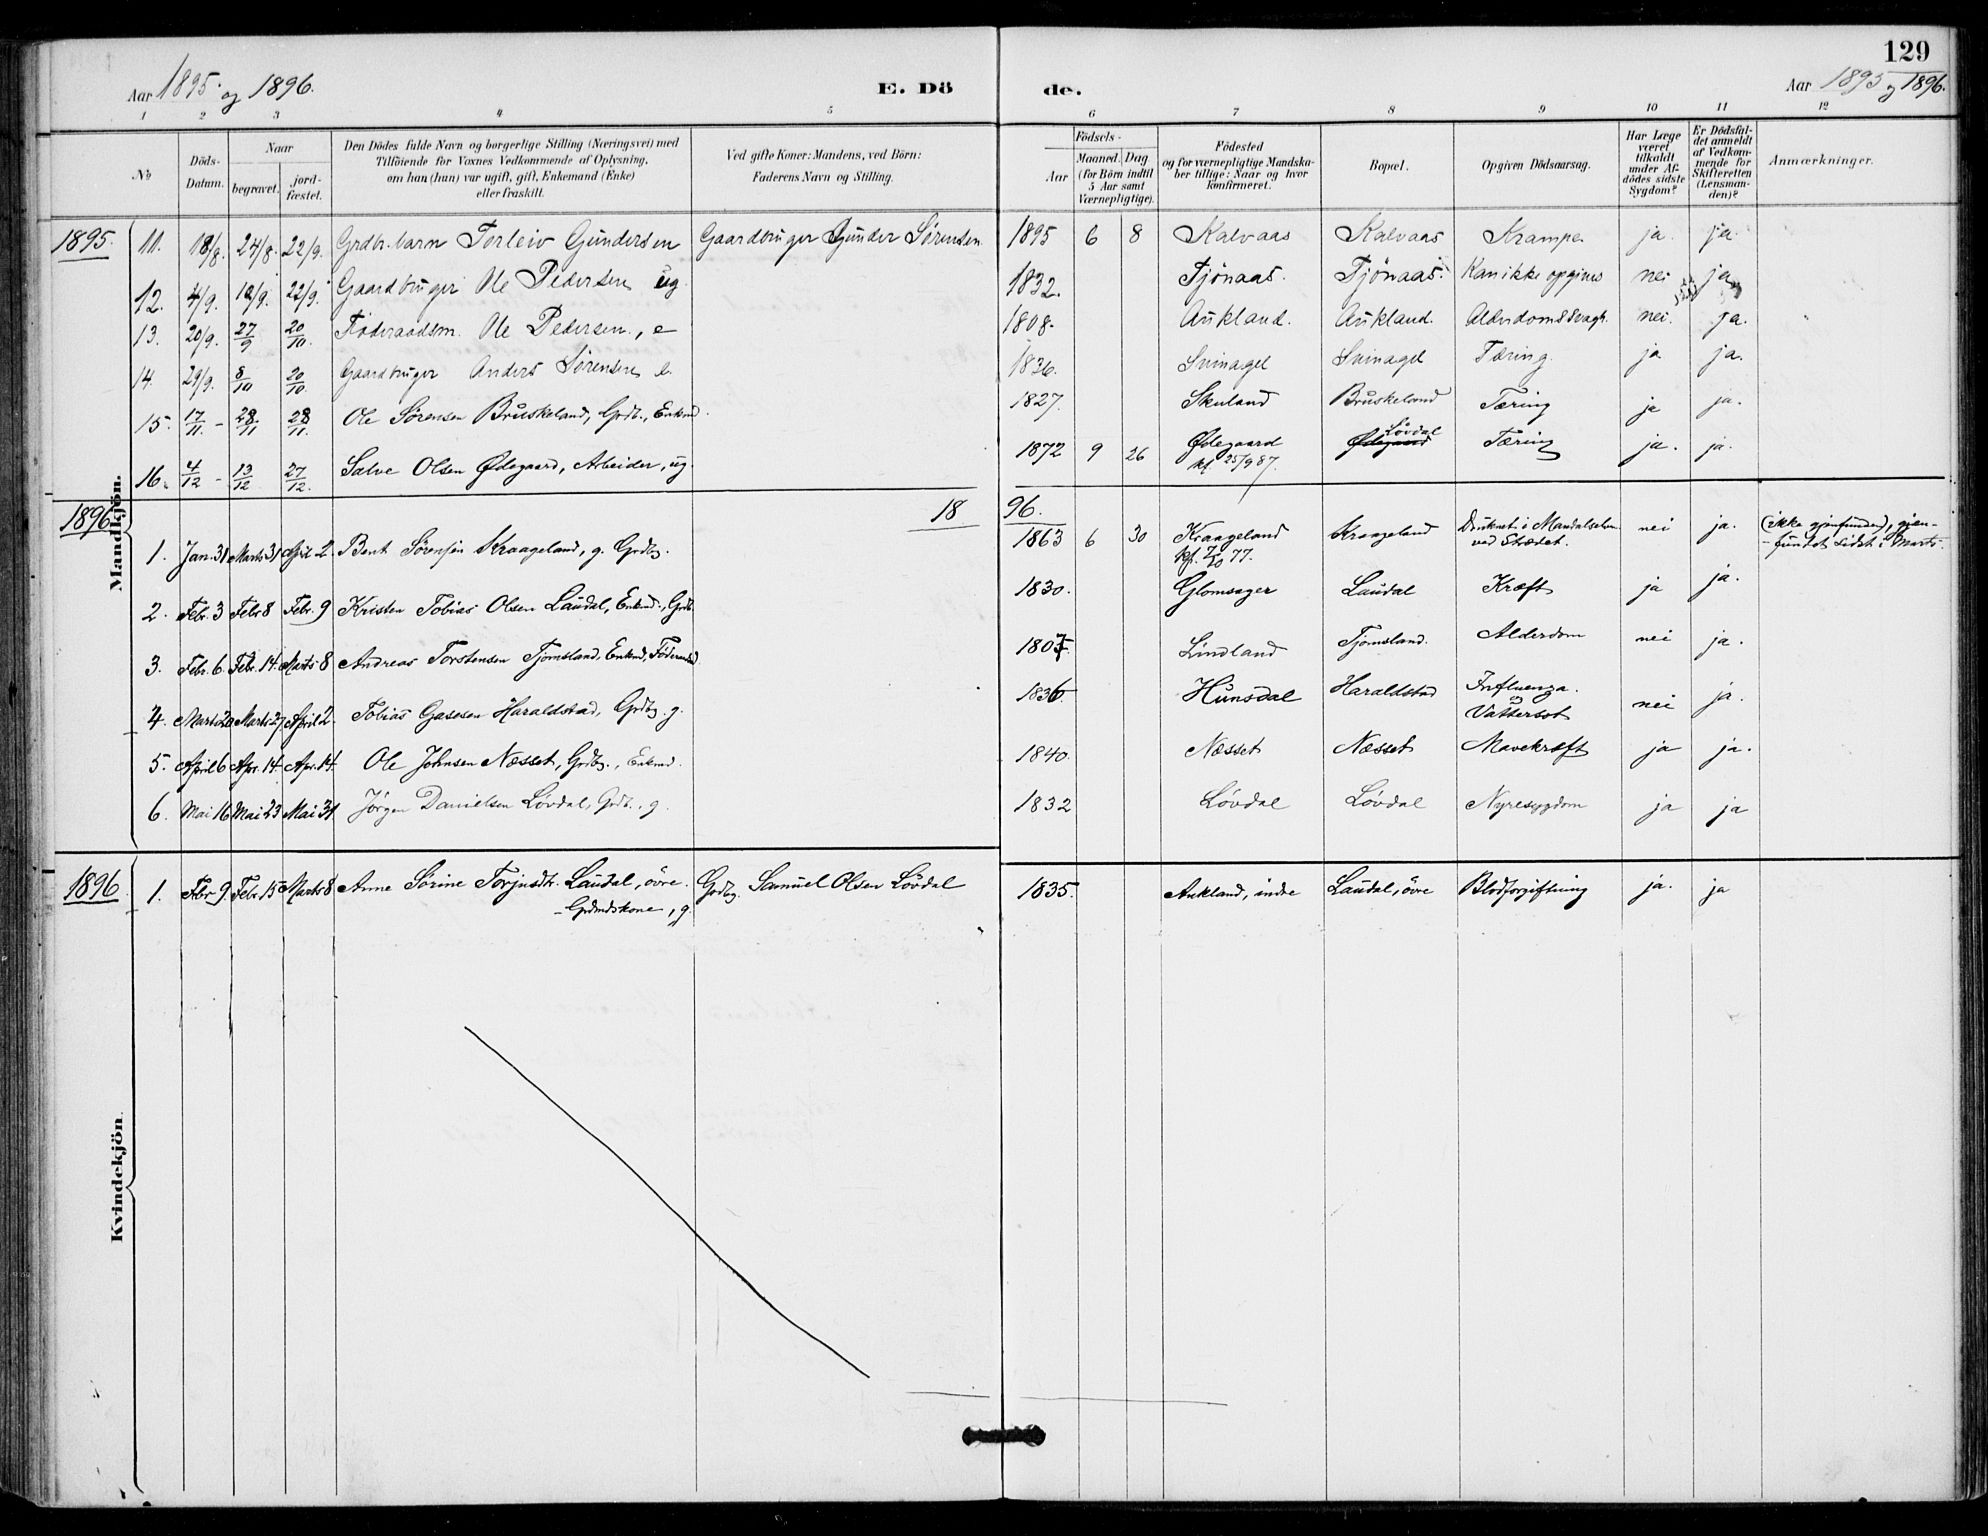 129
Aar 1895 og 1896.
E. Dö
de.
Aar 1895 og 1896.
1 2 3 4 5 6 7 8 9 10 11 12
No
Döds-Datum.
Naar
begravet.
jord-fæstet.
Den Dödes fulde Navn og borgerlige Stilling (Næringsvei) med
Tilföiende for Voxnes Vedkommende af Oplysning,
om han (hun) var ugift, gift, Enkemand (Enke)
eller fraskilt.
Ved gifte Koner: Mandens, ved Börn:
Faderens Navn og Stilling.
Födsels-
Aar
Maaned. Dag
(for Börn indtil
5 Aar samt
Værnepligtige).
Födested
og for værnepligtige Mandska-
ber tillige: Naar og hvor
konfirmeret.
Bopæl.
Opgiven Dödsaarsag.
Har Læge
været
tilkaldt
under Af-
dödes sidste
Sygdom?
Er Dödsfal-
det anmeldt
af Vedkom-
mende for
Skifteretten
(Lensman-
den)?
Anmærkninger.
Mandkjön.
1895.
11. 18/8. 24/8. 22/9. Grdbr.barn Torleiv Gundersen Gaardbruger Gunder Sörensen. 1895 6 8 Kalvaas Kalvaas Krampe ja. ja.
12. 4/9. 10/9. 22/9. Gaardbruger Ole Pedersen ug. 1832. Tjönaas. Tjönaas. Kan ikke opgives nei ja
13. 20/9. 27/9 20/10. Föderaadsm. Ole Pedersen, e 1808. Aukland. Aukland. Alderdomssvagh. nei. ja.
14. 29/9. 8/10 20/10. Gaardbruger Anders Sörensen e. 1836. Svinagel Svinagel Tæring. ja ja.
15. 17/11. - 28/11 28/11. Ole Sörensen Bruskeland, Grdb., Enkmd. 1827. Skuland Bruskeland Tæring ja ja.
16. 4/12 - 13/12 27/12. Salve Olsen Ødegaard, Arbeider, ug. 1872 9 26 Ødegaard Løvdal Ødegaard Tæring ja. ja.
kf. 25/9 87.
1896 18 96.
1. Jan. 31 Marts 31 April 2. Bent Sörensen Kraageland, g. Grdbg. 1863 6 30 Kraageland Kraageland Druknet i Mandalselven nei ja. (ikke gjenfunden), gjen-
ved Strædet. - fundet sidst i Marts.
2. Febr. 3 Febr 8 Febr. 9 Kristen Tobias Olsen Laudal, Enkmd., Grdb. 1830. Glomsager Laudal Kræft ja ja.
3. Febr. 6. Febr. 14. Marts 8 Andreas Torstensen Tjomsland, Enkmd, Föderaad. 1807 Lindland Tjomsland. Alderdom nei ja.
4. Marts 20 Marts 27 April 2. Tobias Gasesen Haraldstad, Grdbg. g. 1836. Hunsdal Haraldstad Influenza. og Vattersot nei ja.
5. April 6 Apr. 14. Apr. 14. Ole Johnsen Næsset, Grdbg., Enkmd. 1840. Næsset Næsset Mavekræft ja ja.
6. Mai 16 Mai 23 Mai 31 Jörgen Danielsen Løvdal, Grdb., g. 1832 Løvdal Løvdal Nyresygdom ja ja
Kvindekjön.
1896 1. Febr 9. Febr. 15 Marts 8 Anne Sörine Torjusdtr. Laudal, övre. Grdbg. Samuel Olsen Løvdal 1835. Aukland, indre Laudal, övre Blodforgiftning ja. ja
- Grdmdskone, g.